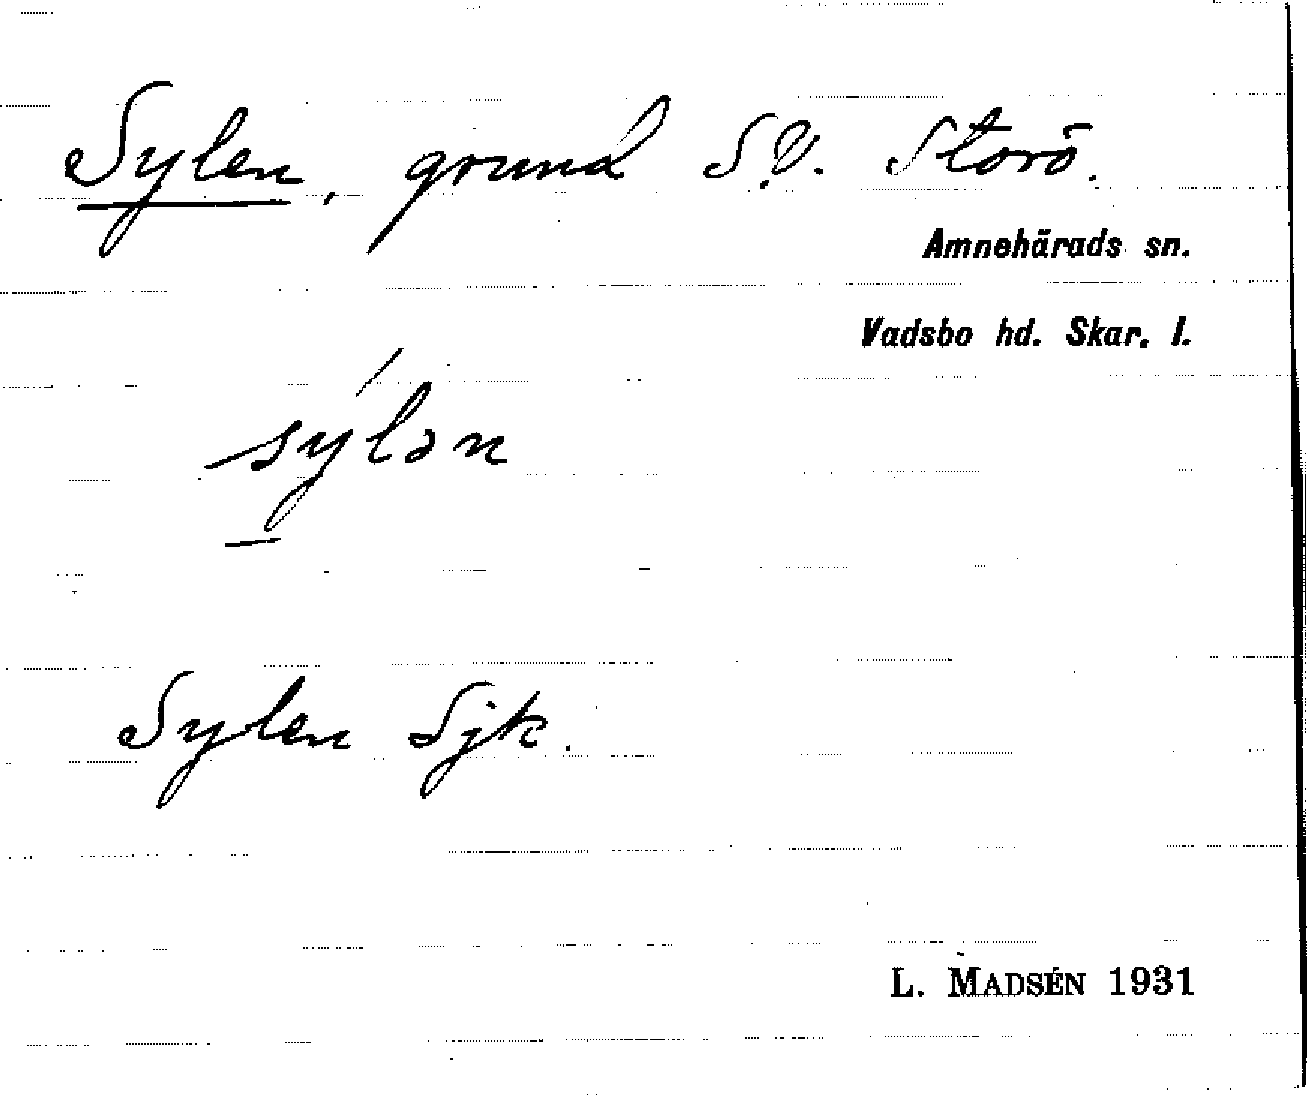 Sylen, grund S.O. Storö.
Amnehärads sn.
Vadsbo hd. Skar. l.
sýlən
Sylen Sjk.
L. MADSÉN 1931